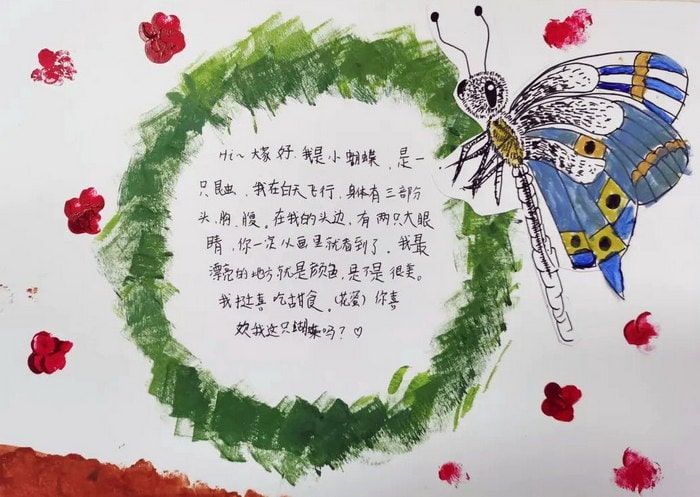 Hi~大家好.我是小蝴蝶,是一
只昆虫,我在白天飞行,身体有三部分
头,胸,腹。在我的头边,有两只大眼
睛,你一定从画里就看到了.我最
漂亮的地方就是颜色,是不是很美。
我挺喜吃甜食。(花蜜)你喜
欢我这只蝴蝶吗?♡